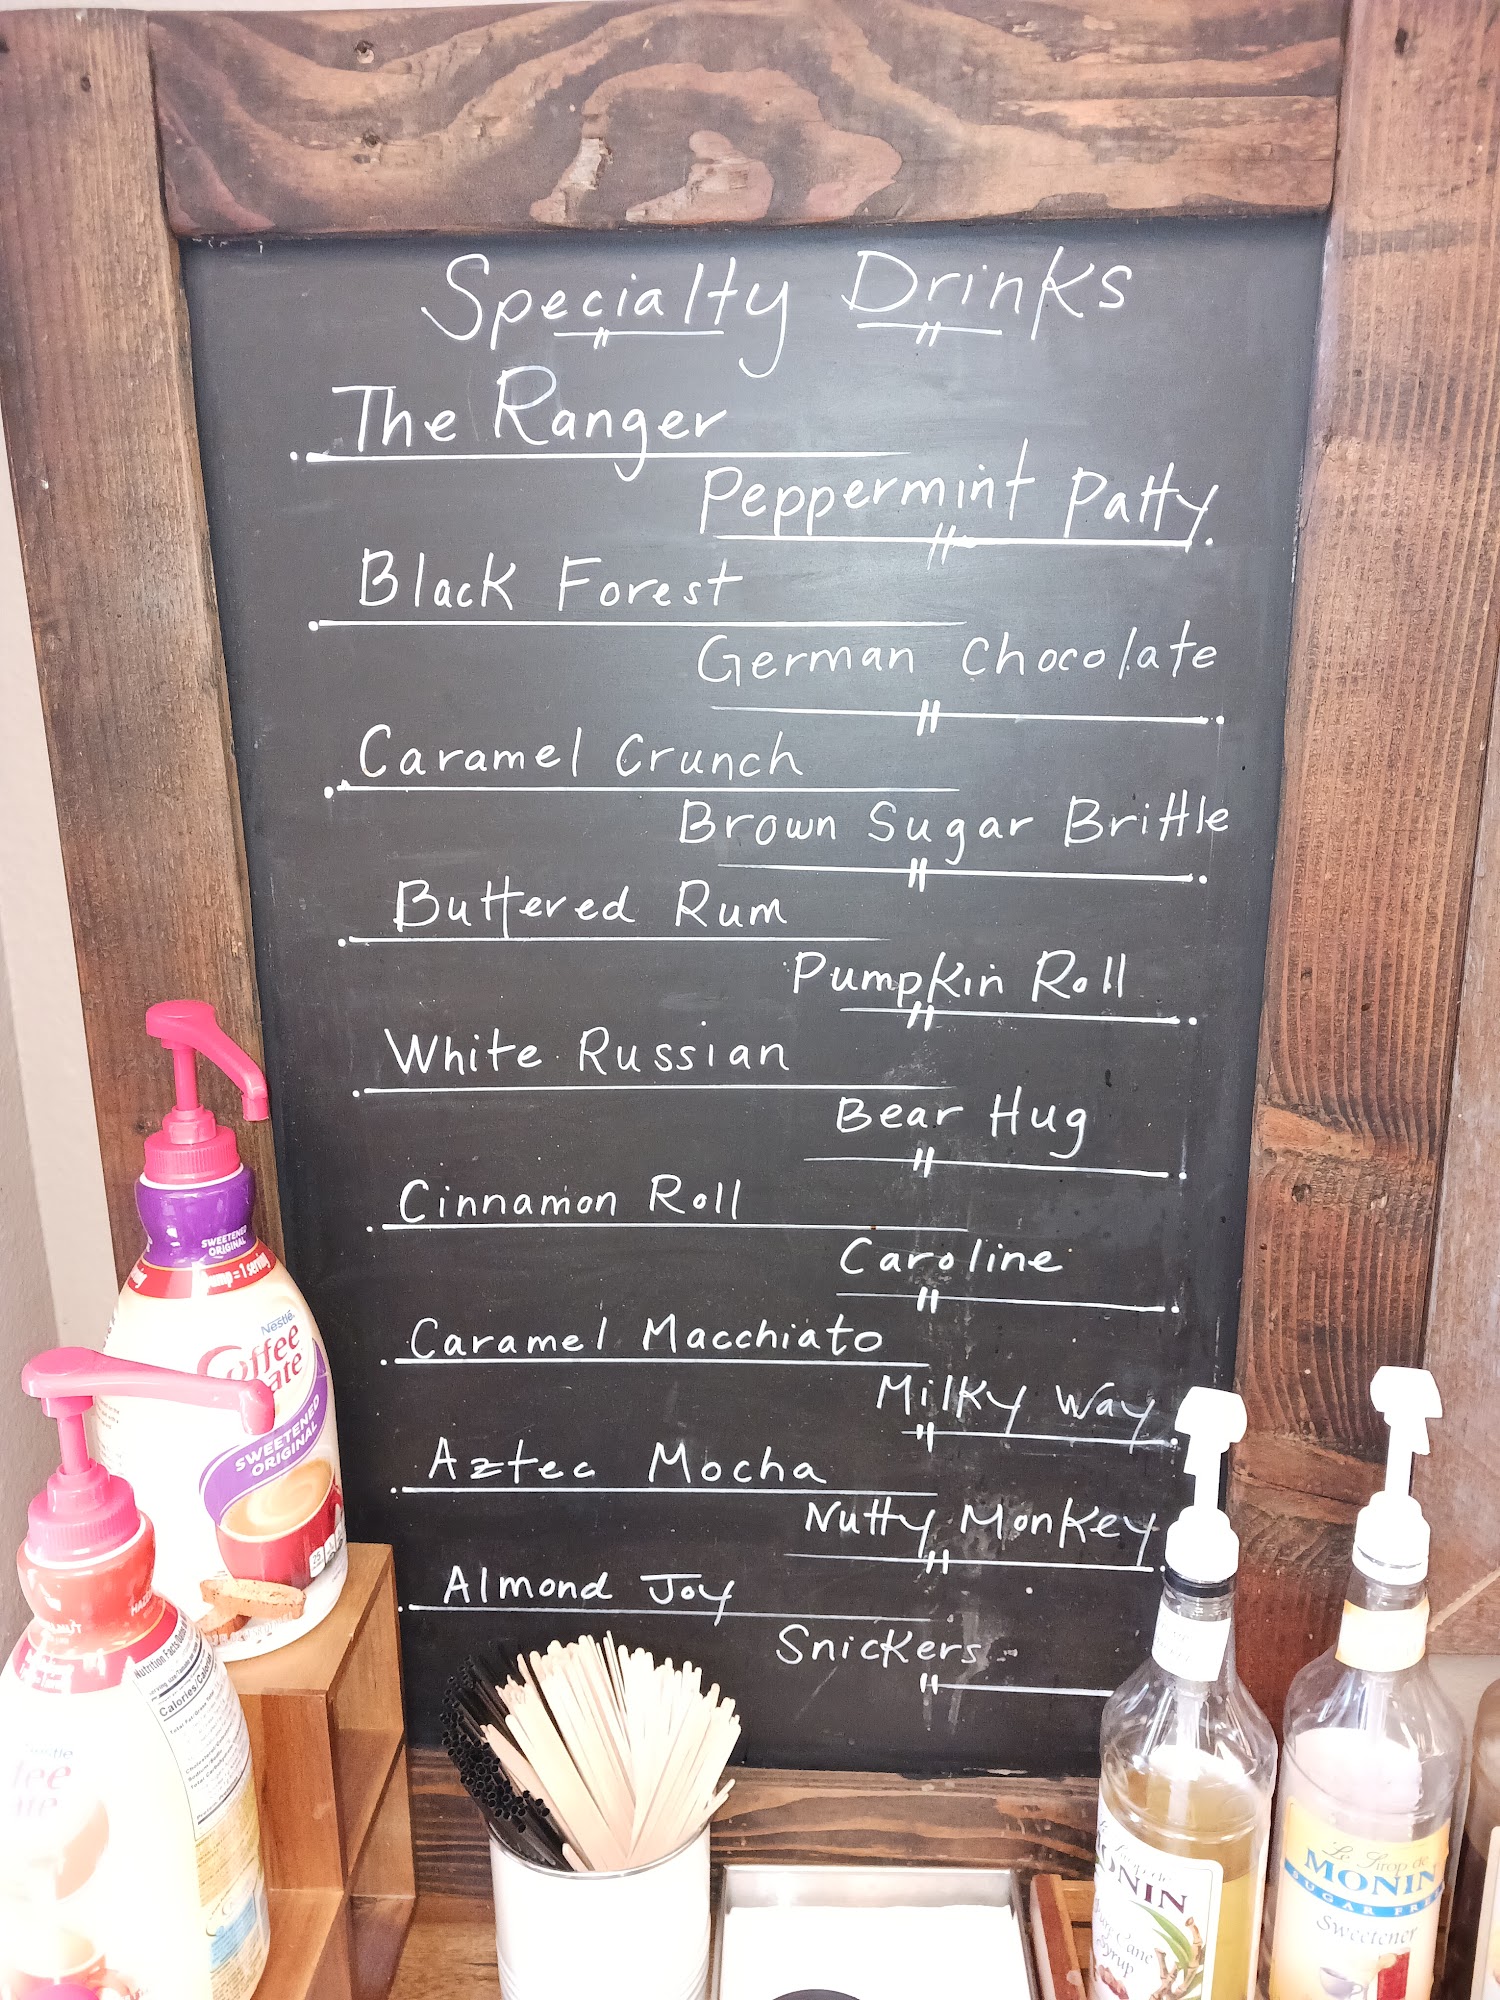 Specialty Drinks
The Ranger
Peppermint Patty
Black Forest
German Chocolate
Caramel Crunch
Brown Sugar Brittle
Buttered Rum
Pumpkin Roll
White Russian
Bear Hug
Cinnamon Roll
Caroline
Caramel Macchiato
Milky Way
Aztec Mocha
Nutty Monkey
Almond Joy
Snickers
SWEETENED
ORIGINAL
Pump = 1 serving
Nestlé
Coffee
mate
SWEETENED
ORIGINAL
Nutrition Facts
Calories
MONIN
Pure Cane
Syrup
Le Sirop de
MONIN
SUGAR FREE
Sweetener